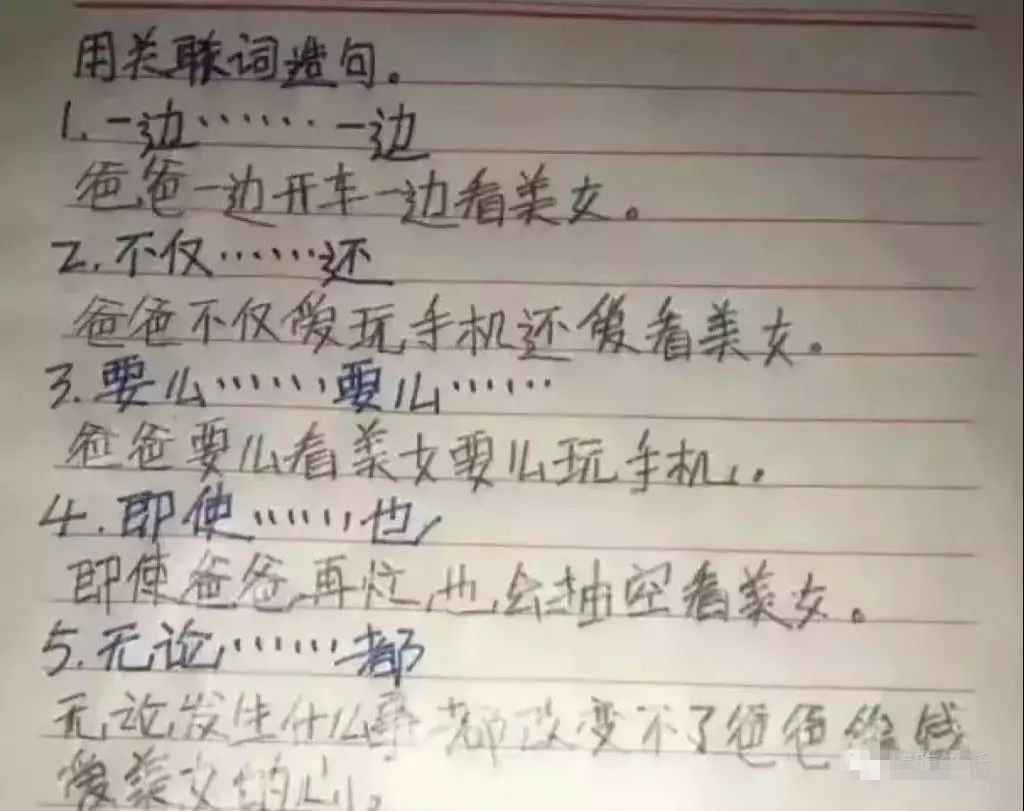 用关联词造句。
1.一边……一边
爸爸一边开车一边看美女。
2.不仅……还
爸爸不仅爱玩手机还爱看美女。
3.要么……要么……
爸爸要么看美女要么玩手机。
4.即使……也
即使爸爸再忙,也会抽空看美女。
5.无论……都
无论发生什么事都改变不了爸爸
爱美女的心。